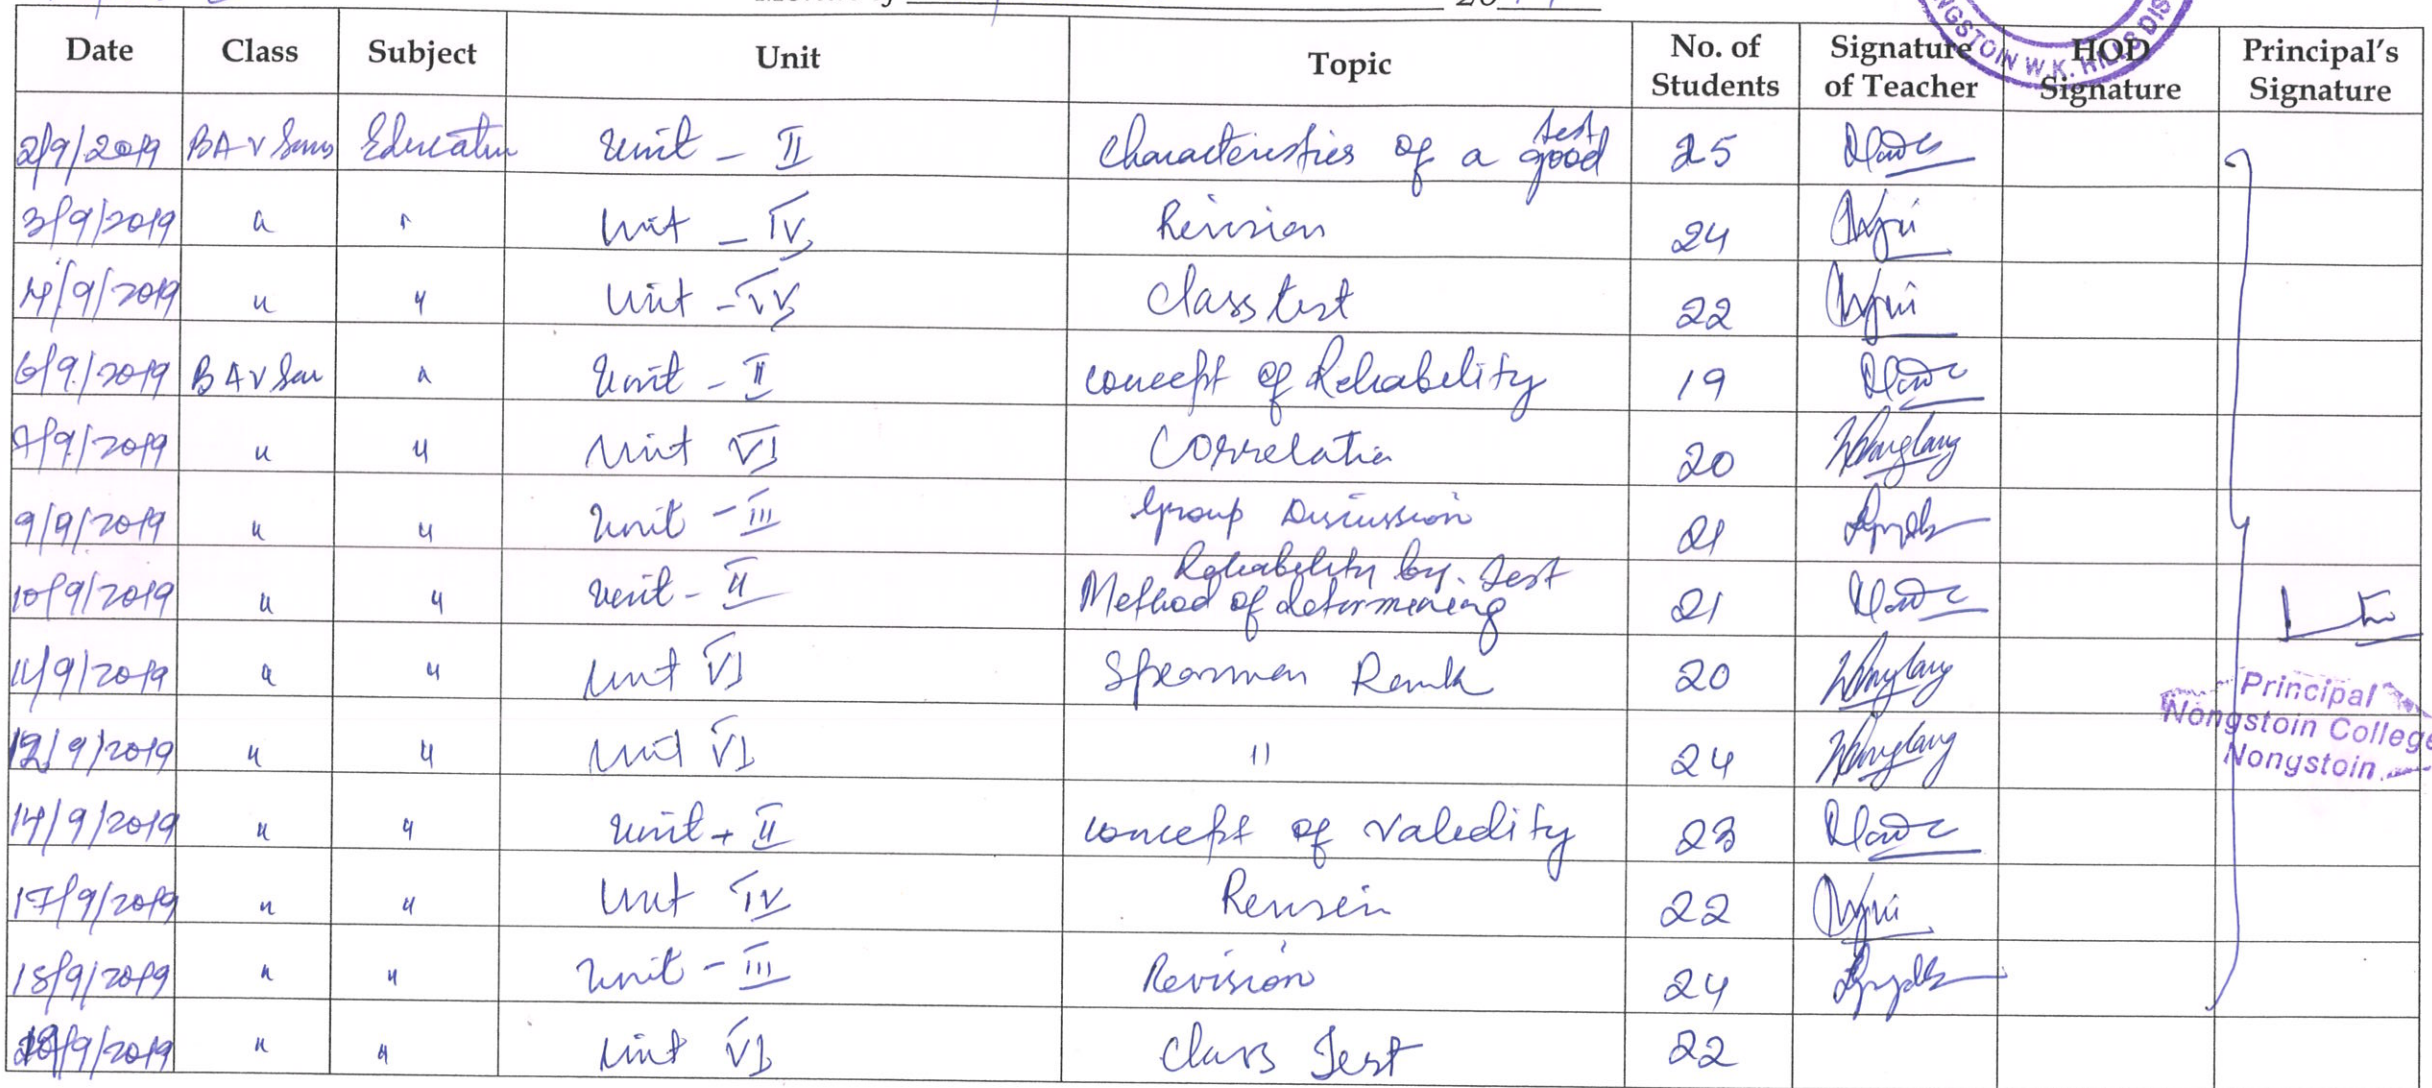 Date Class Subject Unit Topic No. of Students Signature of Teacher HOD Signature Principal's Signature
NGSTOIN W.K. HILLS DIS
2/9/2019 BA V Sem Education Unit - II Characteristics of a good test 25
3/9/2019 " " Unit - IV Revision 24
4/9/2019 " " Unit - IV Class test 22
6/9/2019 BA V Sem " Unit - II concept of Reliability 19
7/9/2019 " " Unit VI Correlation 20
9/9/2019 " " Unit - III Group Discussion 21
10/9/2019 " " Unit - II Method of determining Reliability by. Test 21
11/9/2019 " " Unit VI Spearman Rank 20
12/9/2019 " " Unit VI " 24
Principal
Nongstoin College
Nongstoin
14/9/2019 " " Unit - II concept of validity 23
17/9/2019 " " Unit IV Revision 22
18/9/2019 " " Unit - III Revision 24
/9/2019 " " Unit VI Class Test 22